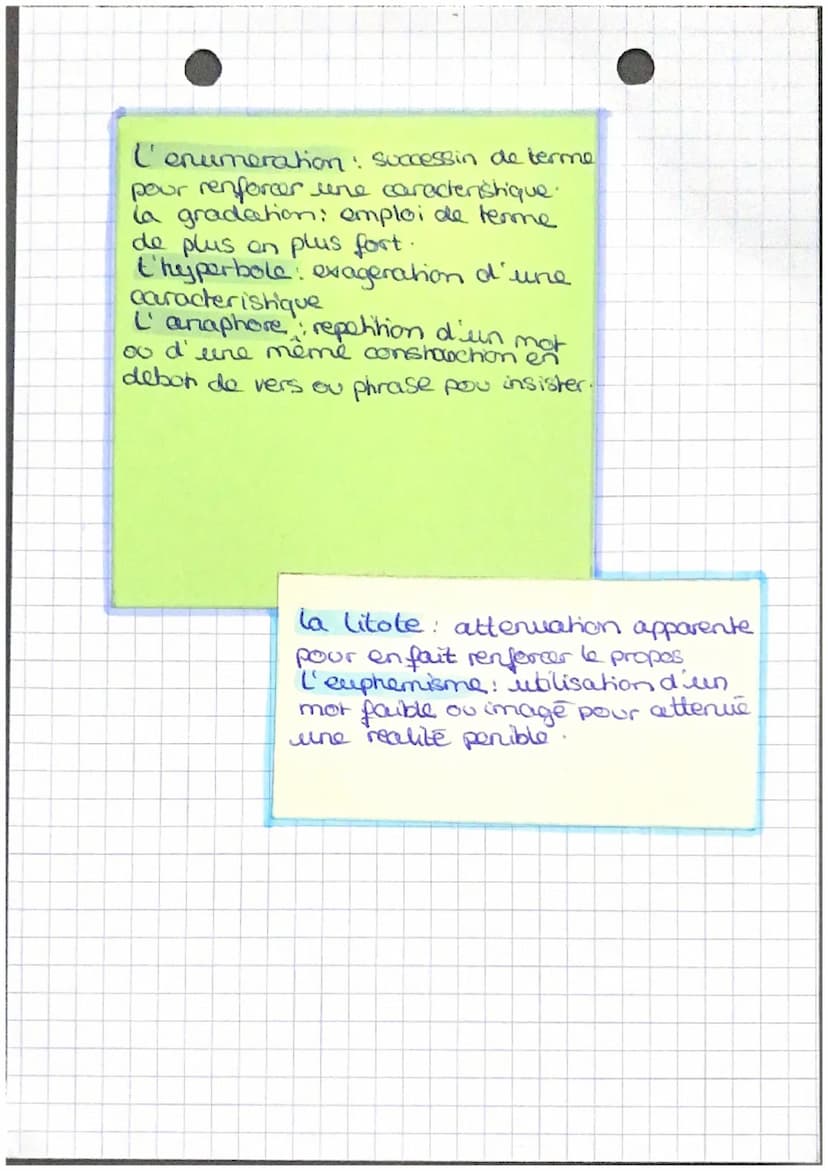 L'enumeration : successin de terme
pour renforcer une caracteristique.
La gradation : emploi de terme
de plus en plus fort.
L'hyperbole : exageration d'une
caracteristique
L'anaphore : repetition d'un mot
ou d'une même construction en
debot de vers ou phrase pou insister.
La litote : attenuation apparente
pour en fait renforcer le propos
L'euphemisme : utilisation d'un
mot faible ou imagé pour attenué
une realité penible.